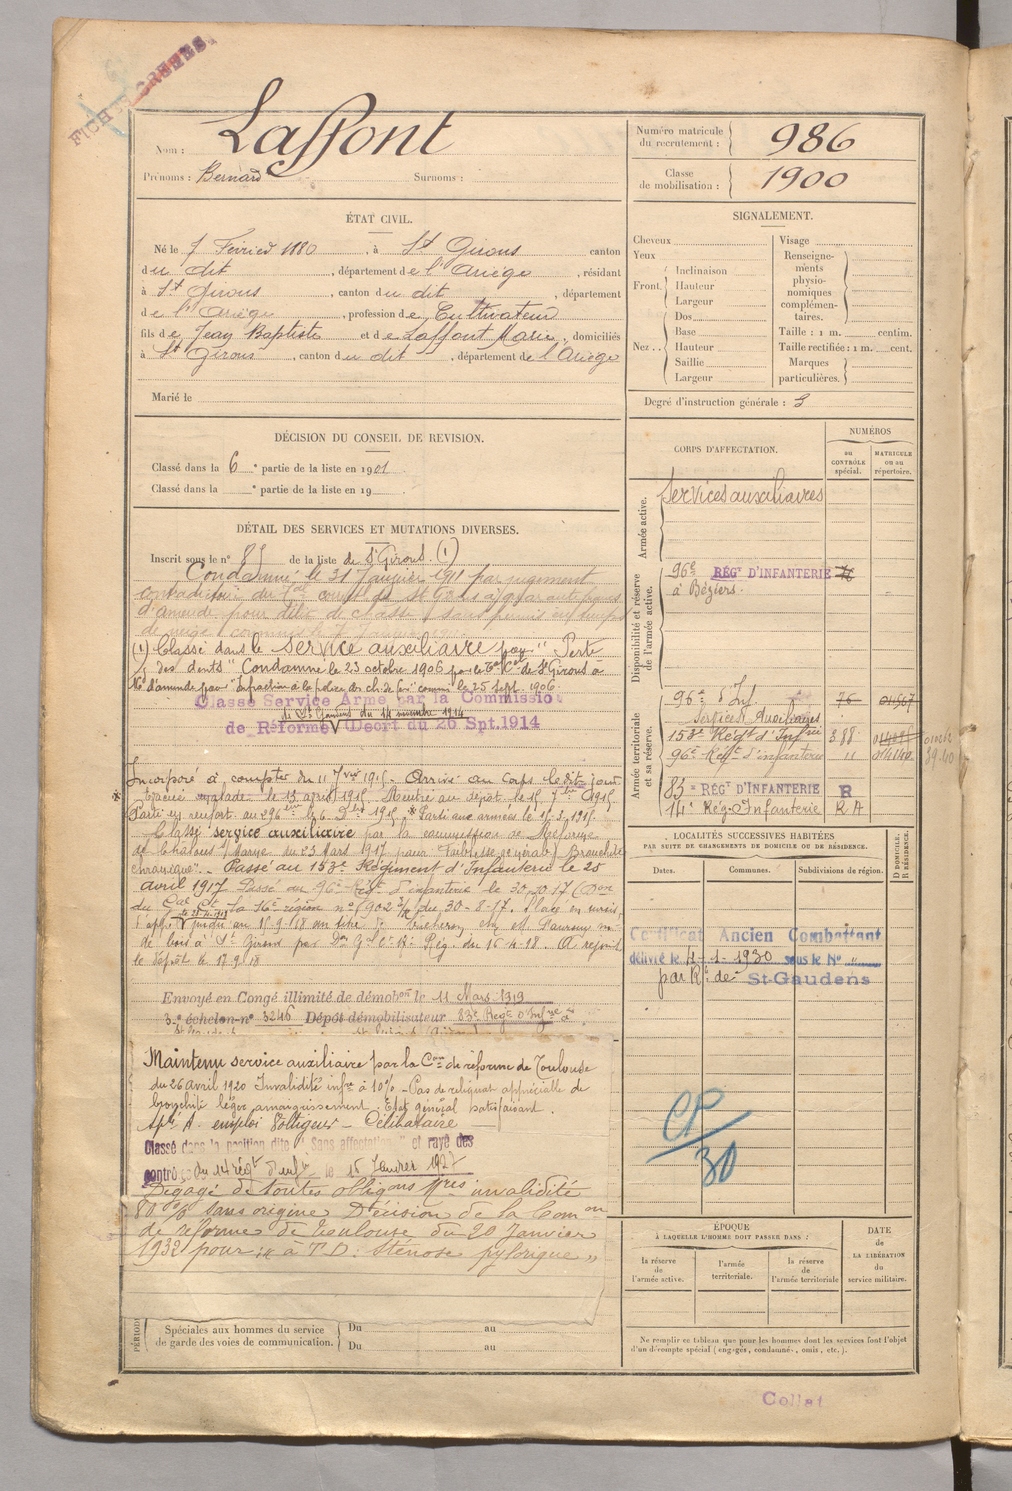 FICHE CRÉÉE
Nom : Laffont
Prénoms : Bernard Surnoms :
Numéro matricule du recrutement : 986
Classe de mobilisation : 1900
ÉTAT CIVIL.
Né le 7 Février 1880, à St Girons canton
du dit, département de l'Ariège, résidant
à St Girons, canton du dit, département
de l'Ariège, profession de Cultivateur
fils de Jean Baptiste et de Laffont Marie, domiciliés
à St Girons, canton du dit, département de l'Ariège
Marié le
SIGNALEMENT.
Cheveux
Yeux
Front. Inclinaison
Hauteur
Largeur
Nez .. Dos
Base
Hauteur
Saillie
Largeur
Visage
Renseigne-
ments
physio-
nomiques
complémen-
taires.
Taille : 1 m. centim.
Taille rectifiée : 1 m. cent.
Marques
particulières.
Degré d'instruction générale : 3
DÉCISION DU CONSEIL DE REVISION.
Classé dans la 6e partie de la liste en 1901
Classé dans la e partie de la liste en 19
DÉTAIL DES SERVICES ET MUTATIONS DIVERSES.
Inscrit sous le n° 85 de la liste de St Girons. (1)
Condamné le 31 Janvier 1911 par jugement
contradictoire du
d'amende pour délit de chasse sans permis en temps
de neige commis le 7 Janvier
(1) Classé dans le service auxiliaire pour "Perte
des dents" Condamné le 23 octobre 1906 par le de St Girons à
16f d'amende pour "Infraction à la police des ch. de fer" commis le 25 Sept. 1906
Classé Service Armé par la Commission
de St Gaudens du 14 novembre 1914
de Réforme Décret du 26 Spt. 1914
Incorporé à compter du 11 1915. Arrivé au corps le dit jour
Evacué malade le 13 avril 1915. Rentré au dépôt le 15 7bre 1915
Parti en renfort au 296eme le 6 Dbre 1915. Parti aux armées le
Classé service auxiliaire par la commission de Réforme
de Chalons s/Marne du 23 Mars 1917 pour Faiblesse générale Bronchite
chronique". Passé au 153e Régiment d'Infanterie le 25
avril 1917 Passé au 96e Régt d'infanterie le 30.10.17 (Don
du Gal Ct la 16e région n° 7902 du 30-8-17. Placé en sursis
d'appel jusqu'au 15-9-18 au titre
de bois à St Girons par Don Rég. du 16-4-18. A rejoint
le dépôt le 17.9.18
Envoyé en Congé illimité de démobon le 11 Mars 1919
3e échelon n° 3246 Dépôt démobilisateur 83e Régt d'Infrie
Maintenu service auxiliaire par la Con de réforme de Toulouse
du 26 avril 1920 Invalidité infre à 10% - Pas de reliquat appréciable de
bronchite léger amaigrissement. Etat général satisfaisant.
Apte A. emploi Voltigeur - Célibataire
Classé dans la position dite "Sans affectation" et rayé des
contrôles du 14 régt d'infie le 15 Janvier 1927
Dégagé de toutes obligons mres invalidité
80% sans origine Décision de la Comon
de réforme de Toulouse du 20 Janvier
1932 pour : à T. D. Sténose pylorique"
PÉRIODES
Spéciales aux hommes du service
de garde des voies de communication.
Du au
Du au
CORPS D'AFFECTATION.
NUMÉROS
au CONTRÔLE spécial.
MATRICULE ou au répertoire.
Armée active.
Services auxiliaires
Disponibilité et réserve de l'armée active.
96e RÉGt D'INFANTERIE
à Béziers.
Armée territoriale et sa réserve.
96e d'Inf. 76 01567
Services Auxiliaires
153e Régt d'Infrie 388
96e Régt d'infanterie 11 014140
83e RÉGt D'INFANTERIE R
14e Rég. Infanterie R A
LOCALITÉS SUCCESSIVES HABITÉES
PAR SUITE DE CHANGEMENTS DE DOMICILE OU DE RÉSIDENCE.
D DOMICILE.
R RÉSIDENCE.
Dates.
Communes.
Subdivisions de région.
Certificat Ancien Combattant
délivré le 4-1-1930 sous le N° "
par Rt de St-Gaudens
CP/30
ÉPOQUE
À LAQUELLE L'HOMME DOIT PASSER DANS :
la réserve de l'armée active.
l'armée territoriale.
la réserve de l'armée territoriale
DATE de LA LIBÉRATION du service militaire.
Ne remplir ce tableau que pour les hommes dont les services font l'objet
d'un décompte spécial (engagés, condamnés, omis, etc.).
Collat